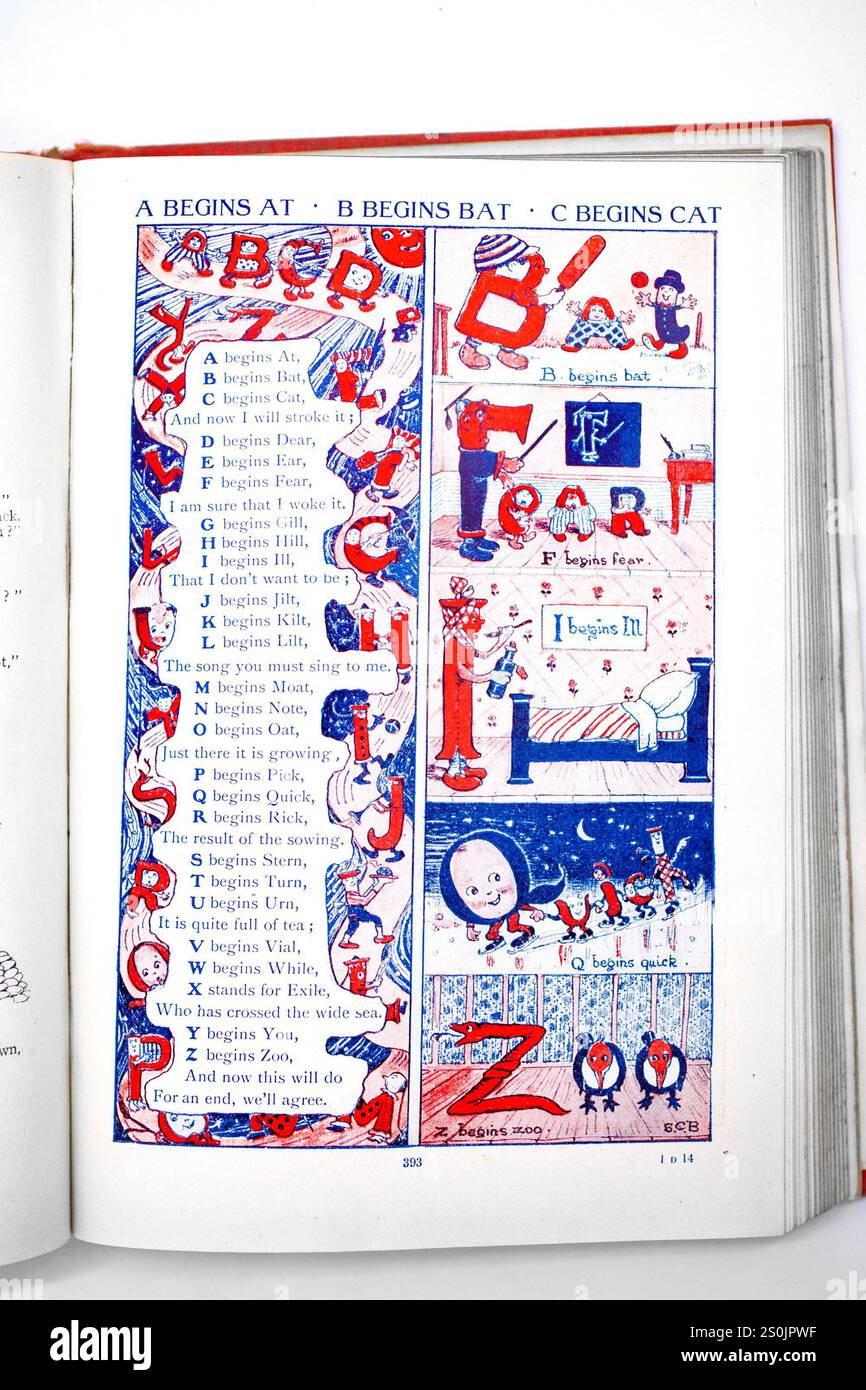 A BEGINS AT · B BEGINS BAT · C BEGINS CAT
A B C D
A begins At,
B begins Bat,
C begins Cat,
And now I will stroke it;
D begins Dear,
E begins Ear,
F begins Fear,
I am sure that I woke it.
G begins Gill,
H begins Hill,
I begins Ill,
That I don't want to be;
J begins Jilt,
K begins Kilt,
L begins Lilt,
The song you must sing to me.
M begins Moat,
N begins Note,
O begins Oat,
Just there it is growing,
P begins Pick,
Q begins Quick,
R begins Rick,
The result of the sowing.
S begins Stern,
T begins Turn,
U begins Urn,
It is quite full of tea;
V begins Vial,
W begins While,
X stands for Exile,
Who has crossed the wide sea.
Y begins You,
Z begins Zoo,
And now this will do
For an end, we'll agree.
B. begins bat.
F begins fear.
I begins Ill
Q begins quick.
Z begins zoo.
S.C.B
393
1 D 14
alamy
Image ID: 2S0JPWF
www.alamy.com